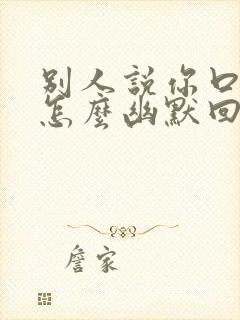 別人説你口
怎麼幽默回
詹家